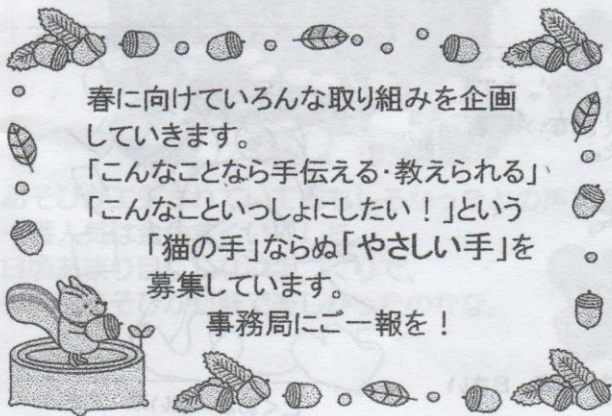 春に向けていろんな取り組みを企画
していきます。
「こんなことなら手伝える・教えられる」
「こんなこといっしょにしたい！」という
「猫の手」ならぬ「やさしい手」を
募集しています。
事務局にご一報を！